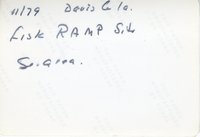 11/79 Davis Co la.
Fisk RAMP Site
So. area.